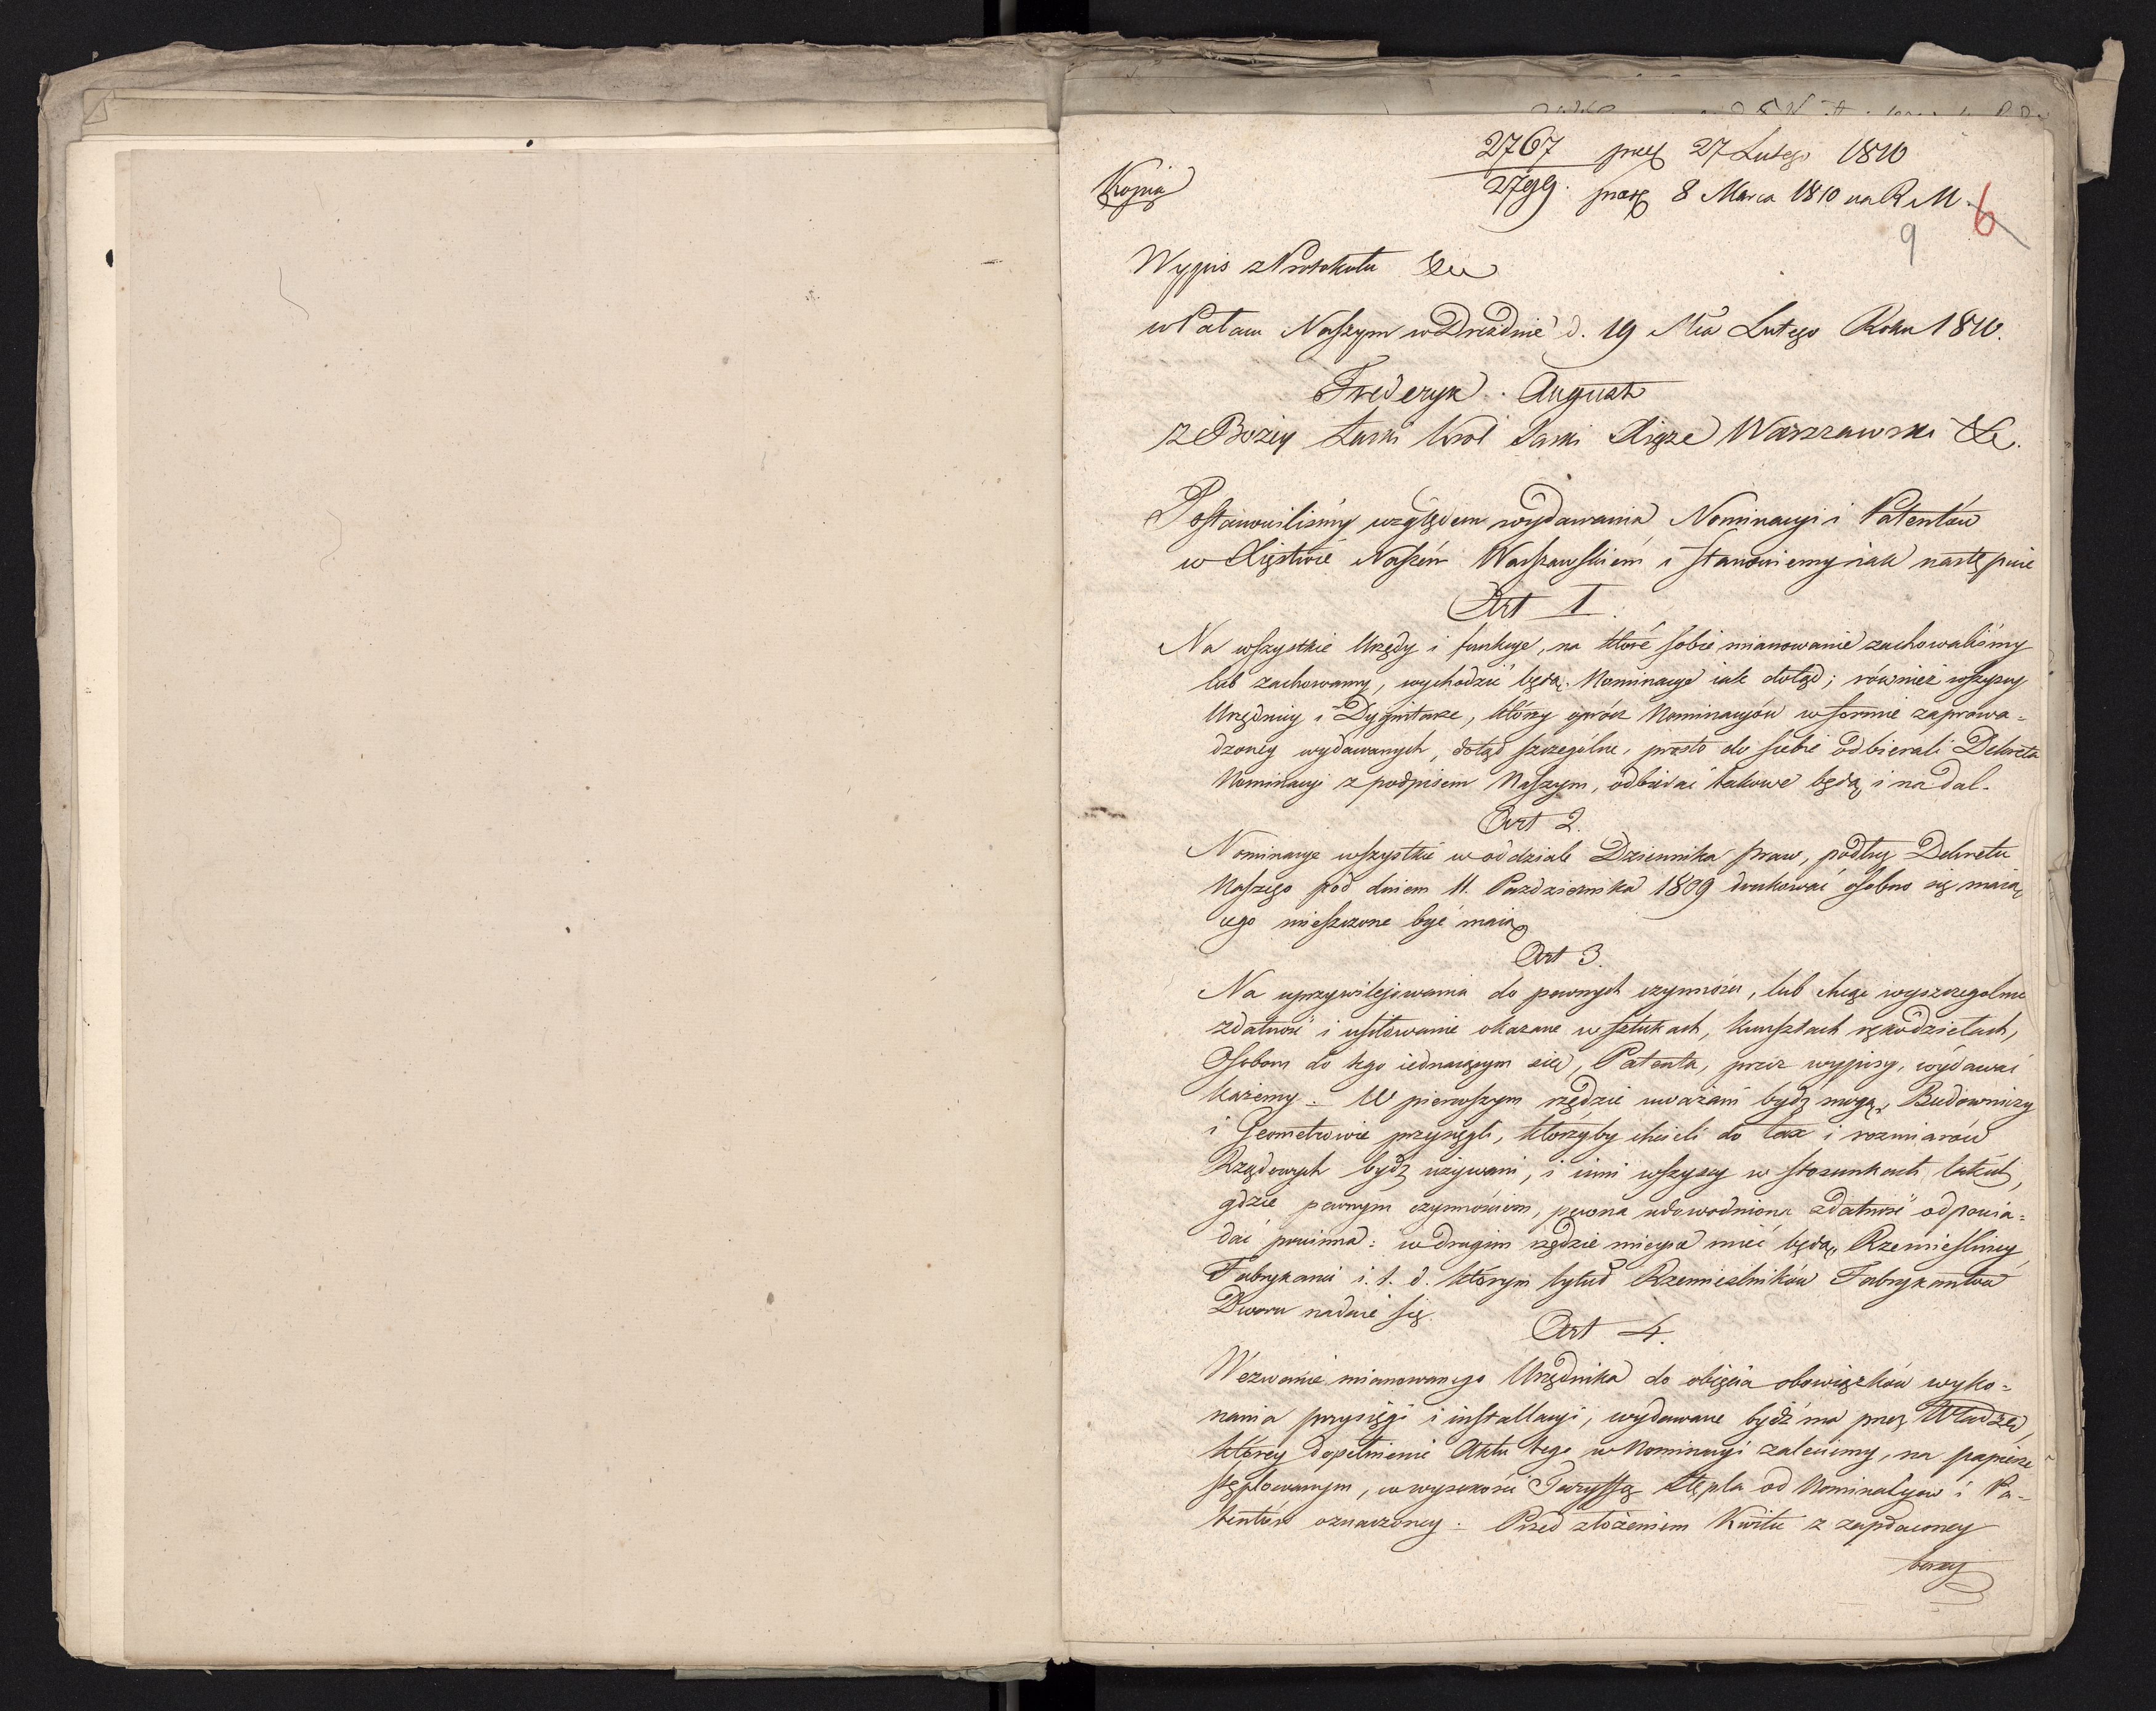 2767 27 Lutego 1810
Kopia
2799. 8 Marca 1810 na R M.
6
9
Wypis z Protokułu &c
w Pałacu Naszym w Dreźdnie d. 19 Mca Lutego Roku 1810.
Fryderyk August
z Bożey Łaski Krol Saski Xiąże Warszawski &c.
Postanowiliśmy względem wydawania Nominacyi i Patentów
w Xięstwie Naszém Warszawskiem i stanowiemy iak następuie
Art I.
Na wszystkie Urzędy i funkcye, na które sobie mianowanie zachowaliśmy
lub zachowamy, wychodzić będą Nominacye iak dotąd; również wszyscy
Urzędnicy i Dygnitarze, którzy oprócz Nominacyów w formie zaprowa=
dzoney wydawanych, dotąd szczególne, prosto do siebie odbierali Dekreta
Nominacyi z podpisem Naszym, odbierać takowe będą i nadal.
Art 2.
Nominacye wszystkie w oddziale Dziennika praw, podług Dekretu
Naszego pod dniem 11. Pazdziernika 1809 drukować osobno się maią
cego mieszczone być maią
Art 3.
Na uprzywilejowania do pewnych czynności, lub chcąc wyszczegolnić
zdatność i usiłowanie okazane w sztukach, kunsztach rękodziełach,
Osobom do tego iednaiącym się, Patenta, przez wypisy, wydawać
każemy. W pierwszym rzędzie uważani bydź mogą, Budowniczy
i Geometrowie przysięgli, którzyby chcieli do tax i rozmiarów
Rządowych bydz używani, i inni wszyscy w stosunkach takich,
gdzie pewnym czynnościom, pewna udowodniona zdatność odpowia=
dać powinna: w drugim rzędzie mieysce mieć będą, Rzemieślnicy
Fabrykanci i. t. d. którym tytuł Rzemieslników Fabrykantów
Dworu nadaie się.
Art 4.
Wezwanie mianowanego Urzędnika do obięcia obowiązków wyko=
nania przysięgi i installacyi, wydawane bydź ma przez Władzę,
którey dopełnienie Aktu tego w Nominacyi zalecimy, na papierze
stęplowanym, w wysokości Taryffą stępla od Nominacyow i Pa=
tentów oznaczoney. Przed złożeniem Kwitu z zapłaconey